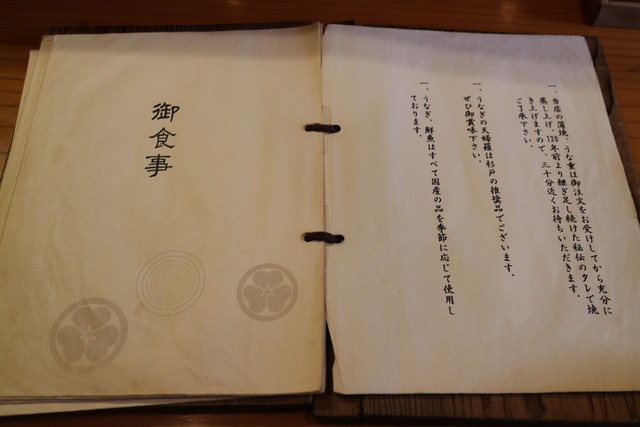 御食事
一、当店の蒲焼、うな重は御注文をお受けしてから充分に
蒸し上げ、120年前より継ぎ足し続けた秘伝のタレで焼
き上げますので、三十分近くお待ちいただきます。
ご了承下さい。
一、うなぎの天婦羅は杉戸の推奨品でございます。
ぜひ御賞味下さい。
一、うなぎ、鮮魚はすべて国産の品を季節に応じて使用し
ております。